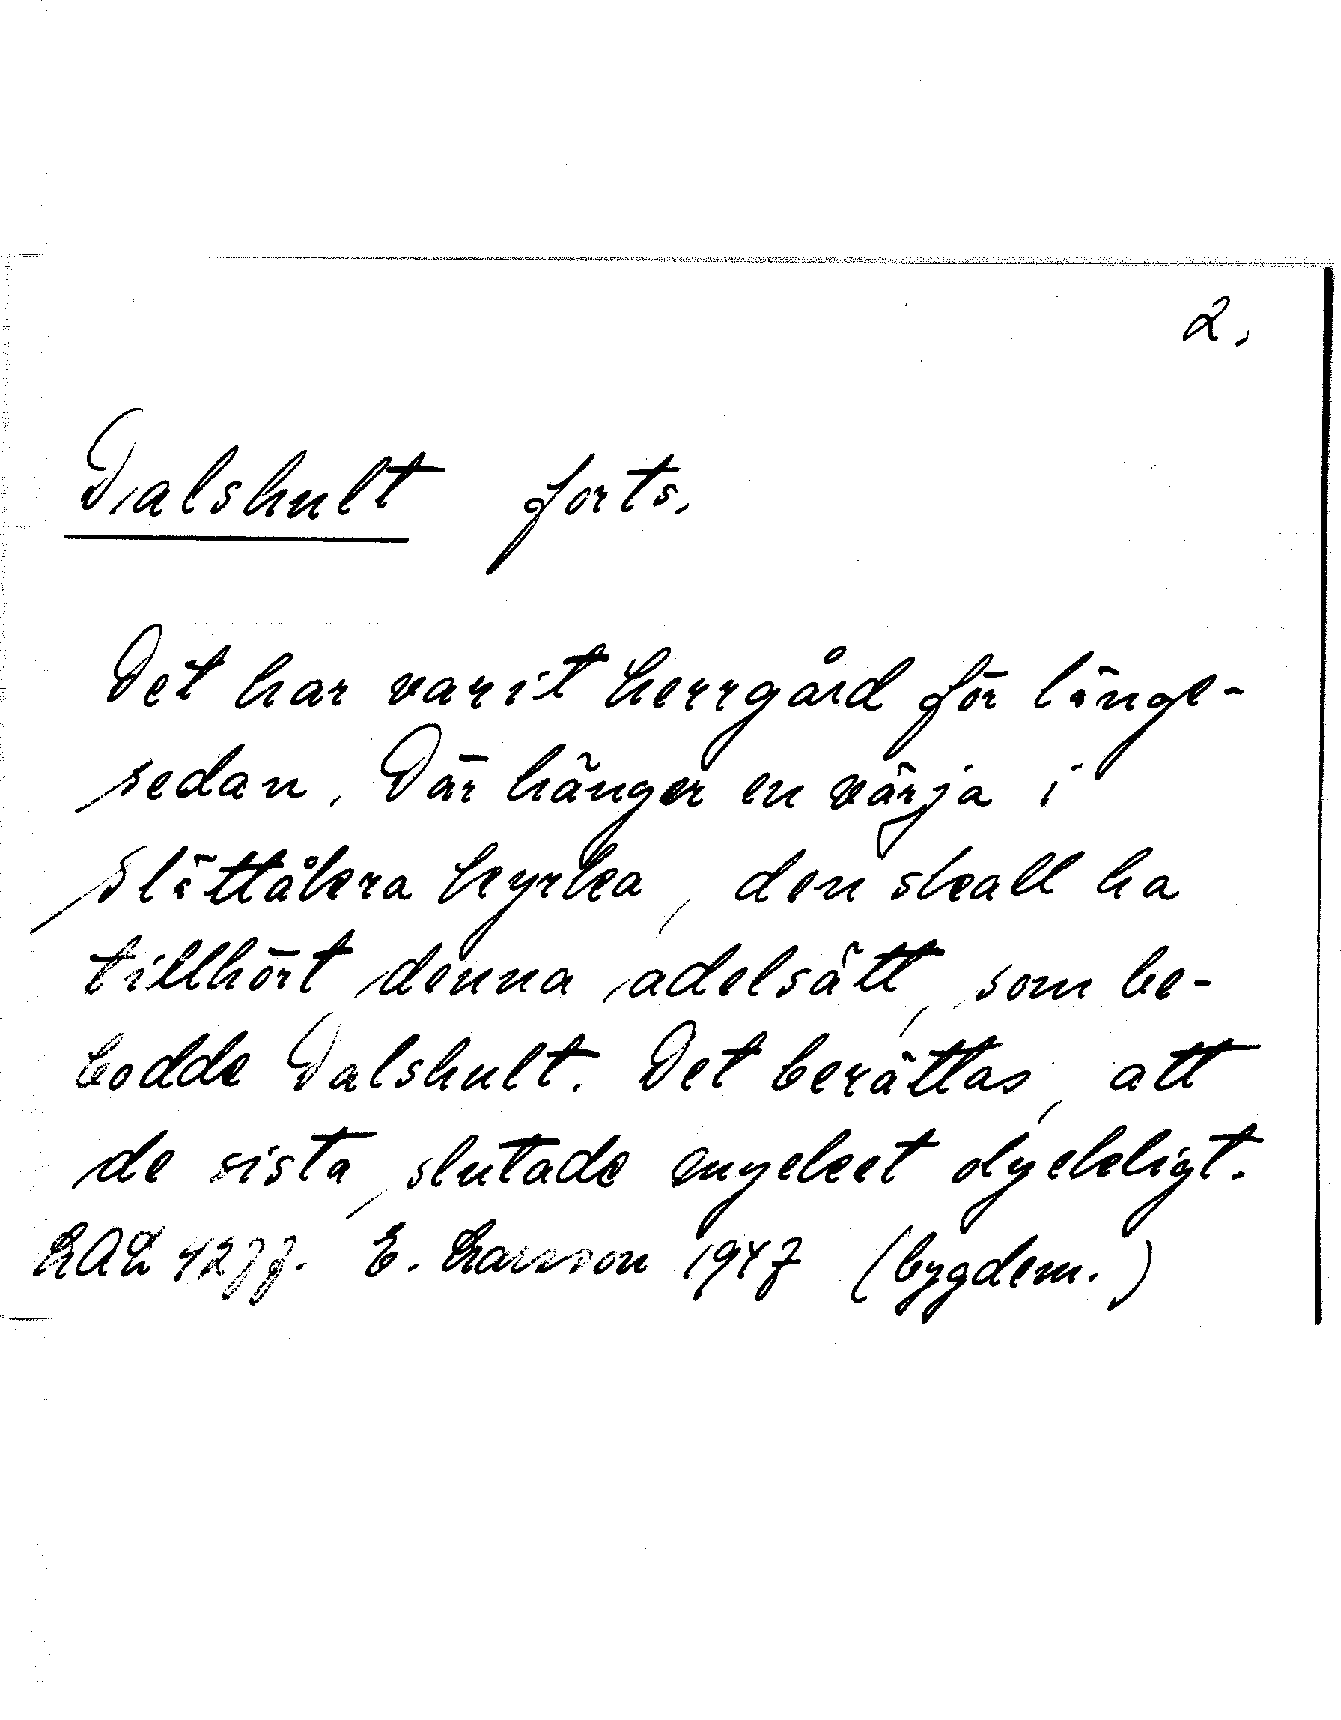 2.
Dalshult forts.
Det har varit herrgård för länge-
sedan. Där hänger en värja i
Slättåkra kyrka, den skall ha
tillhört denna adelsätt, som be-
bodde Dalshult. Det berättas, att
de sista slutade mycket olyckligt.
LAL 4277. E. Larsson 1947 (bygdem.)